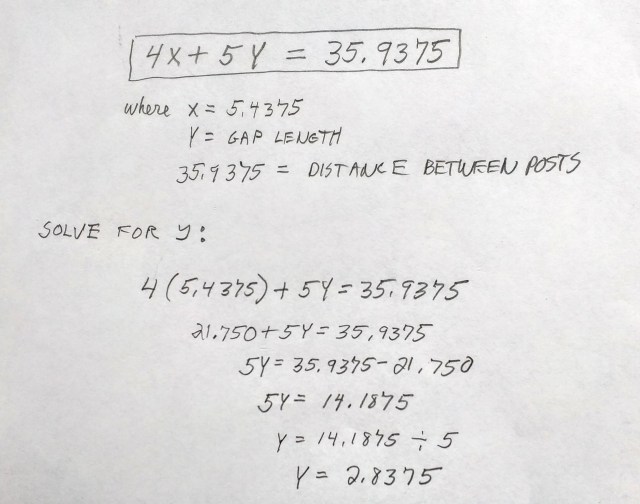 4X + 5Y = 35.9375
where X = 5.4375
Y = GAP LENGTH
35.9375 = DISTANCE BETWEEN POSTS
SOLVE FOR Y:
4(5.4375) + 5Y = 35.9375
21.750 + 5Y = 35.9375
5Y = 35.9375 - 21.750
5Y = 14.1875
Y = 14.1875 ÷ 5
Y = 2.8375